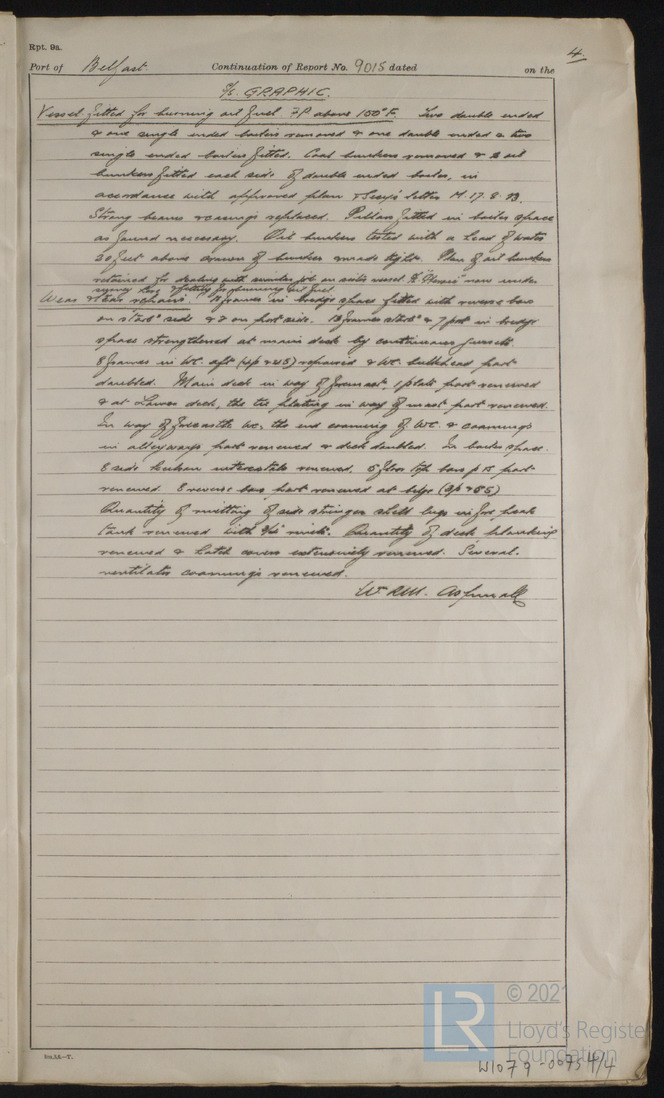 Rpt. 9a.
4.
Port of Belfast. Continuation of Report No. 9015 dated on the
S/S. GRAPHIC.
Vessel fitted for burning oil fuel F.P. above 150°F. Two double ended
& one single ended boilers removed & one double ended & two
single ended boilers fitted. Coal bunkers removed & 2 oil
bunkers fitted each side of double ended boiler, in
accordance with approved plan & Secy's letter M. 17. 8. 23.
Strong beams & casings replaced. Pillars fitted in boiler space
as found necessary. Oil bunkers tested with a head of water
20 feet above crown of bunker made tight. Plan of oil bunkers
retained for dealing with similar job on sister vessel S/S "Heroic" now under
fitting for burning oil fuel.
Wear & tear repairs. frames in bridge space fitted with reverse bars
on starb'd side & 2 on port side. 13 frames starb'd & 7 port in bridge
space strengthened at main deck by continuous gussets.
8 frames in WC. aft (4p & 4S) repaired & WC. bulkhead part
doubled. Main deck in way of foremast, 1 plate part renewed
& at Lower deck, the tie plating in way of mast part renewed.
In way of forecastle WC, the end coaming of WC. & coamings
in alleyways part renewed & deck doubled. In boiler space.
8 side keelson intercostals renewed. 5 floor top bars part
renewed. 8 reverse bars part renewed at bilge (3p & 5S)
Quantity of rivetting of side stringer shell lugs in fore peak
tank renewed with 3/4" rivets. Quantity of deck planking
renewed & hatch covers extensively renewed. Several
ventilator coamings renewed.
W. R. M. Aspinall
5m.1A.—T.
LR
© 2021
Lloyd's Register
Foundation
W1079-0075 4/4